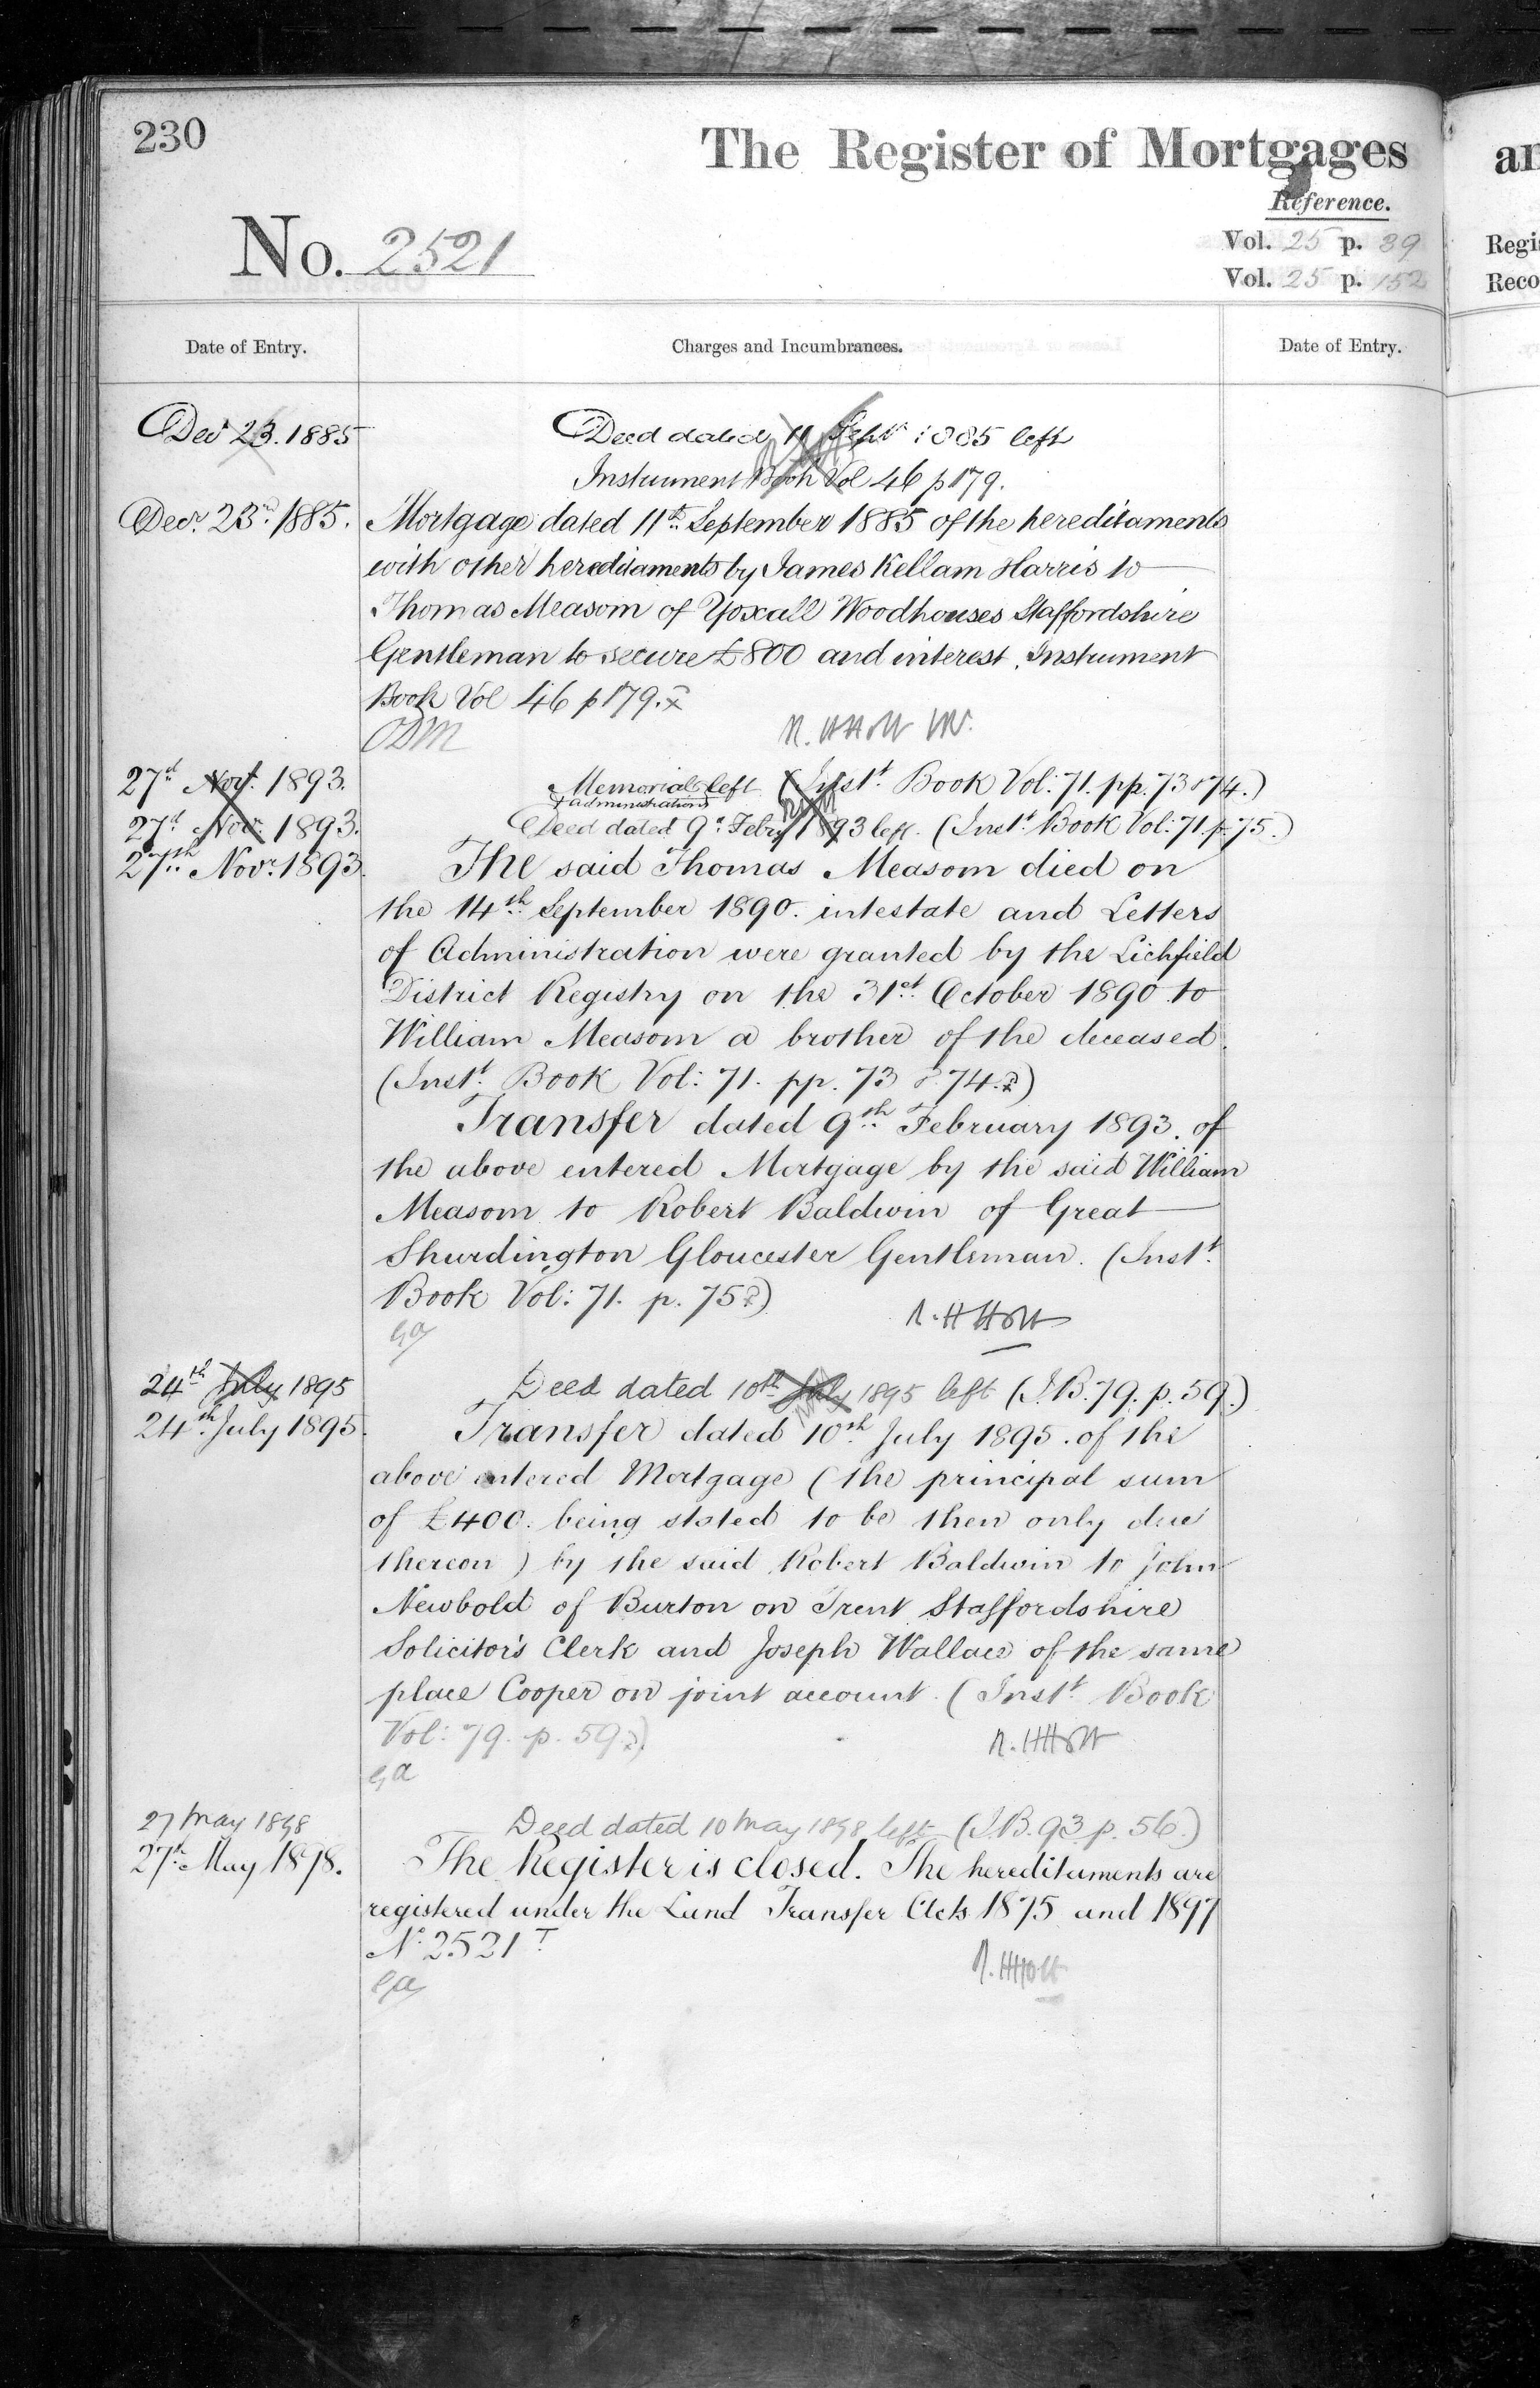 230
The Register of Mortgages
Reference.
No. 2521
Vol. 25 p. 39
Vol. 25 p. 152
Regi
Reco
Date of Entry.
Charges and Incumbrances.
Date of Entry.
Decr 23. 1885
Deed dated 11 Septr 1885 left
Instrument Book Vol 46 p 179.
Decr. 23rd. 1885.
Mortgage dated 11th September 1885 of the hereditaments
with other hereditaments by James Kellam Harris to
Thomas Measom of Yoxall Woodhouses Staffordshire
Gentleman to secure £800 and interest. Instrument
Book Vol 46 p 179.
R. H Holt
27th Novr. 1893.
Memorial left (Instt. Book Vol: 71. pp. 73 & 74.)
& administration
27th Nov. 1893.
Deed dated 9th Febry 1893 left. (Instt. Book Vol: 71. p. 75.)
27th Novr. 1893.
The said Thomas Measom died on
the 14th September 1890. intestate and Letters
of Administration were granted by the Lichfield
District Registry on the 31st October 1890 to
William Measom a brother of the deceased.
(Instt. Book Vol: 71. pp. 73 & 74.)
Transfer dated 9th February 1893. of
the above entered Mortgage by the said William
Measom to Robert Baldwin of Great
Shurdington Gloucester Gentleman. (Instt.
Book Vol: 71. p. 75)
R. H Holt
24th July 1895
Deed dated 10th July 1895 left (I.B. 79. p. 59.)
24th July 1895.
Transfer dated 10th July 1895. of the
above entered Mortgage (the principal sum
of £400. being stated to be then only due
thereon) by the said Robert Baldwin to John
Newbold of Burton on Trent Staffordshire
Solicitor's Clerk and Joseph Wallace of the same
place Cooper on joint account. (Instt. Book
Vol: 79. p. 59.)
R. H Holt
27 May 1898
Deed dated 10 May 1898 left (I.B. 93 p. 56.)
27th May 1898.
The Register is closed. The hereditaments are
registered under the Land Transfer Acts 1875 and 1897
No. 2521 T
R. H Holt